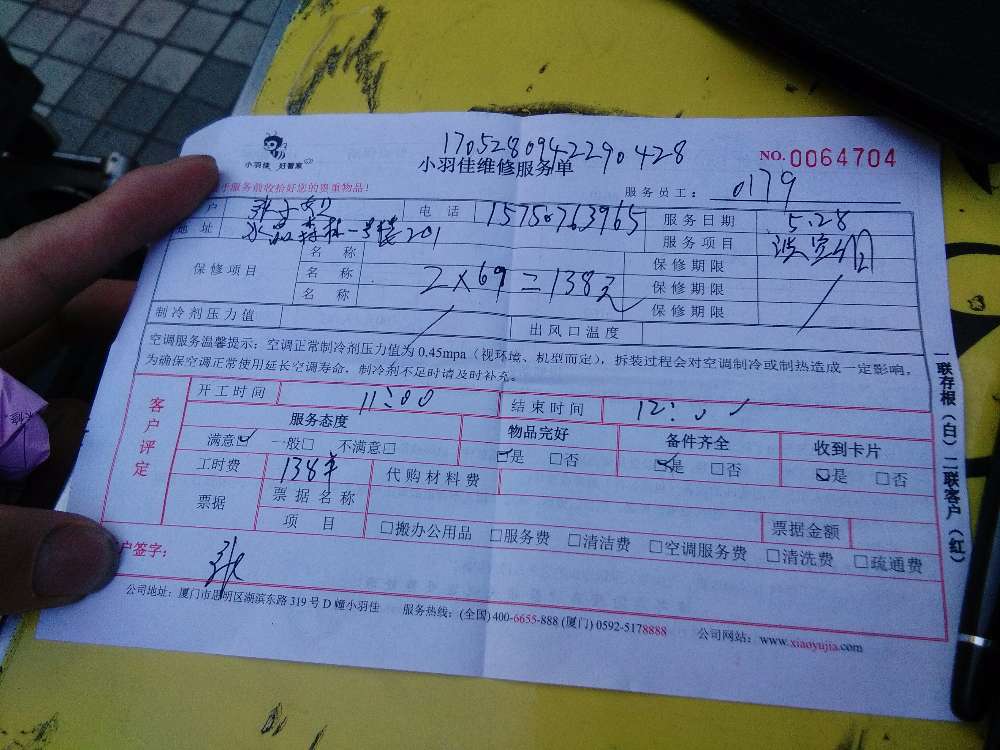 小羽佳 好管家
1705280942290428
小羽佳维修服务单
NO.0064704
于服务前收拾好您的贵重物品!
服务员工: 0179
户 电 话 15750763965 服务日期 5.28
地 址 水晶森林一号楼201 服务项目
保修项目 名 称 保修期限
名 称 2×69=138元 保修期限
名 称 保修期限
制冷剂压力值 出风口温度
空调服务温馨提示: 空调正常制冷剂压力值为 0.45mpa (视环境、机型而定), 拆装过程会对空调制冷或制热造成一定影响,
为确保空调正常使用延长空调寿命, 制冷剂不足时请及时补充。
客户评定 开工时间 11:00 结束时间 12:
服务态度 物品完好 备件齐全 收到卡片
满意☑ 一般□ 不满意□ ☑是 □否 ☑是 □否 ☑是 □否
工时费 138 代购材料费
票据 票据名称 票据金额
项 目 □搬办公用品 □服务费 □清洁费 □空调服务费 □清洗费 □疏通费
户签字: 张
公司地址: 厦门市思明区湖滨东路 319 号 D 幢小羽佳 服务热线: (全国) 400-6655-888 (厦门) 0592-5178888 公司网站: www.xiaoyujia.com
一联存根(白) 二联客户(红)